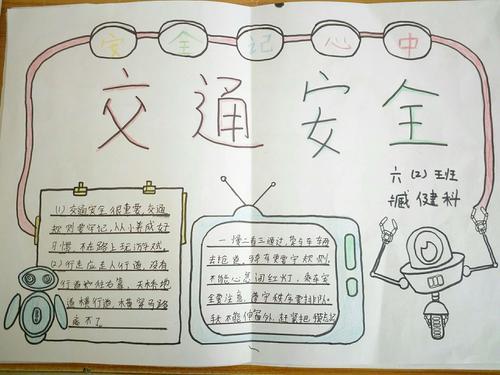 安全记心中
交通安全
六(2)班
臧健科
(1)交通安全很重要,交通
规则要牢记,从小养成好
习惯,不在路上玩游戏
(2)行走应走人行道,没有
行道也往右靠,天桥地
道横行道,横穿马路
一慢二看三通过,莫与车辆
去抢道,骑车更要守规则,
不能心急闯红灯,乘车安
全要注意,遵守秩序要排队,
手头不能伸窗外,扶紧把